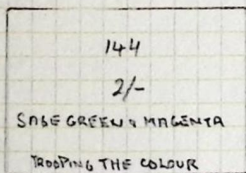 144
2/-
SAGE GREEN & MAGENTA
TROOPING THE COLOUR